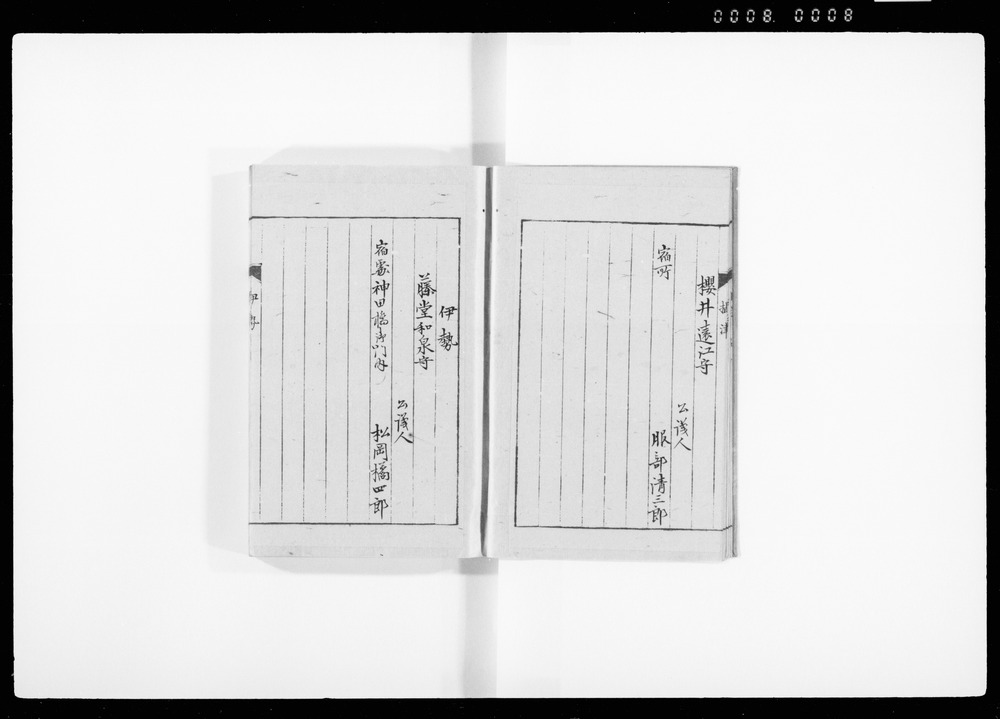 0008 0008
攝津
櫻井遠江守
公議人
宿所
服部清三郎
伊勢
藤堂和泉守
公議人
宿処神田橋御門内
松岡橘四郎
伊勢